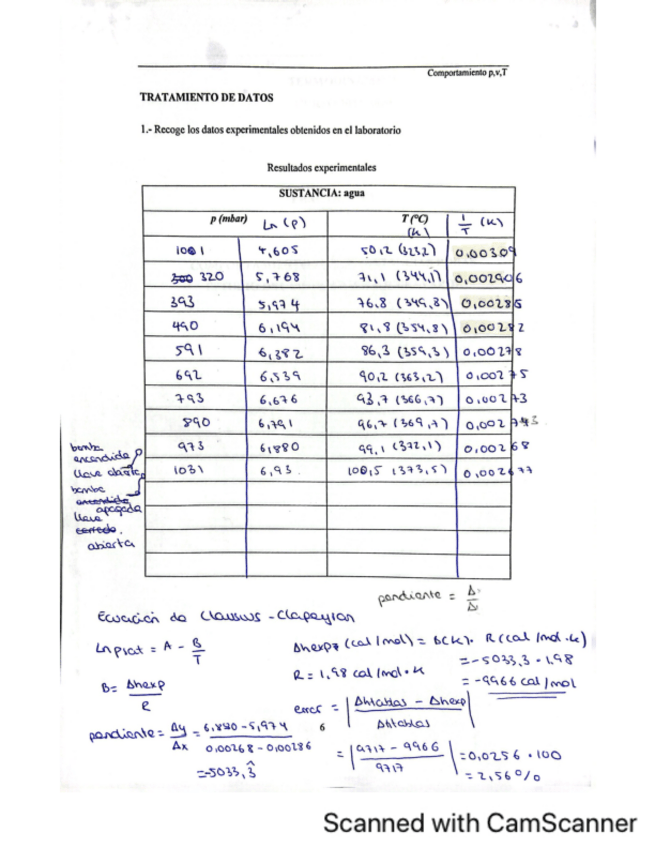 Comportamiento p,v,T
TRATAMIENTO DE DATOS
1.- Recoge los datos experimentales obtenidos en el laboratorio
Resultados experimentales
SUSTANCIA: agua
p (mbar) Ln (p) T (ºC) (K) 1/T (K)
1001 4,605 50,2 (323,2) 0,00309
300 320 5,768 71,1 (344,1) 0,002906
393 5,974 76,8 (349,8) 0,00286
490 6,194 81,8 (354,8) 0,00282
591 6,382 86,3 (359,3) 0,00278
692 6,539 90,2 (363,2) 0,00275
793 6,676 93,7 (366,7) 0,00273
890 6,791 96,7 (369,7)
973 6,880 99,1 (372,1) 0,00268
1031 6,93 100,5 (373,5) 0,002677
bomba
encendida
llave abierta
bomba
encendida
apagada
llave
cerrado.
abierta
pendiente = Δ/Δ
Ecuación de Clausius-Clapeyron
Ln psat = A - B/T
Δhexp (cal/mol) = B(K). R (cal/mol.K)
= -5033,3 . 1,98
B = Δhexp/R
R = 1,98 cal/mol.K
= -9966 cal/mol
error = |Δhtablas - Δhexp / Δhtablas|
pendiente = Δy/Δx = 6,880-5,974 / 0,00268-0,00286
6
= |9717-9966 / 9717| = 0,0256 . 100
= -5033,3̂
= 2,56%
Scanned with CamScanner